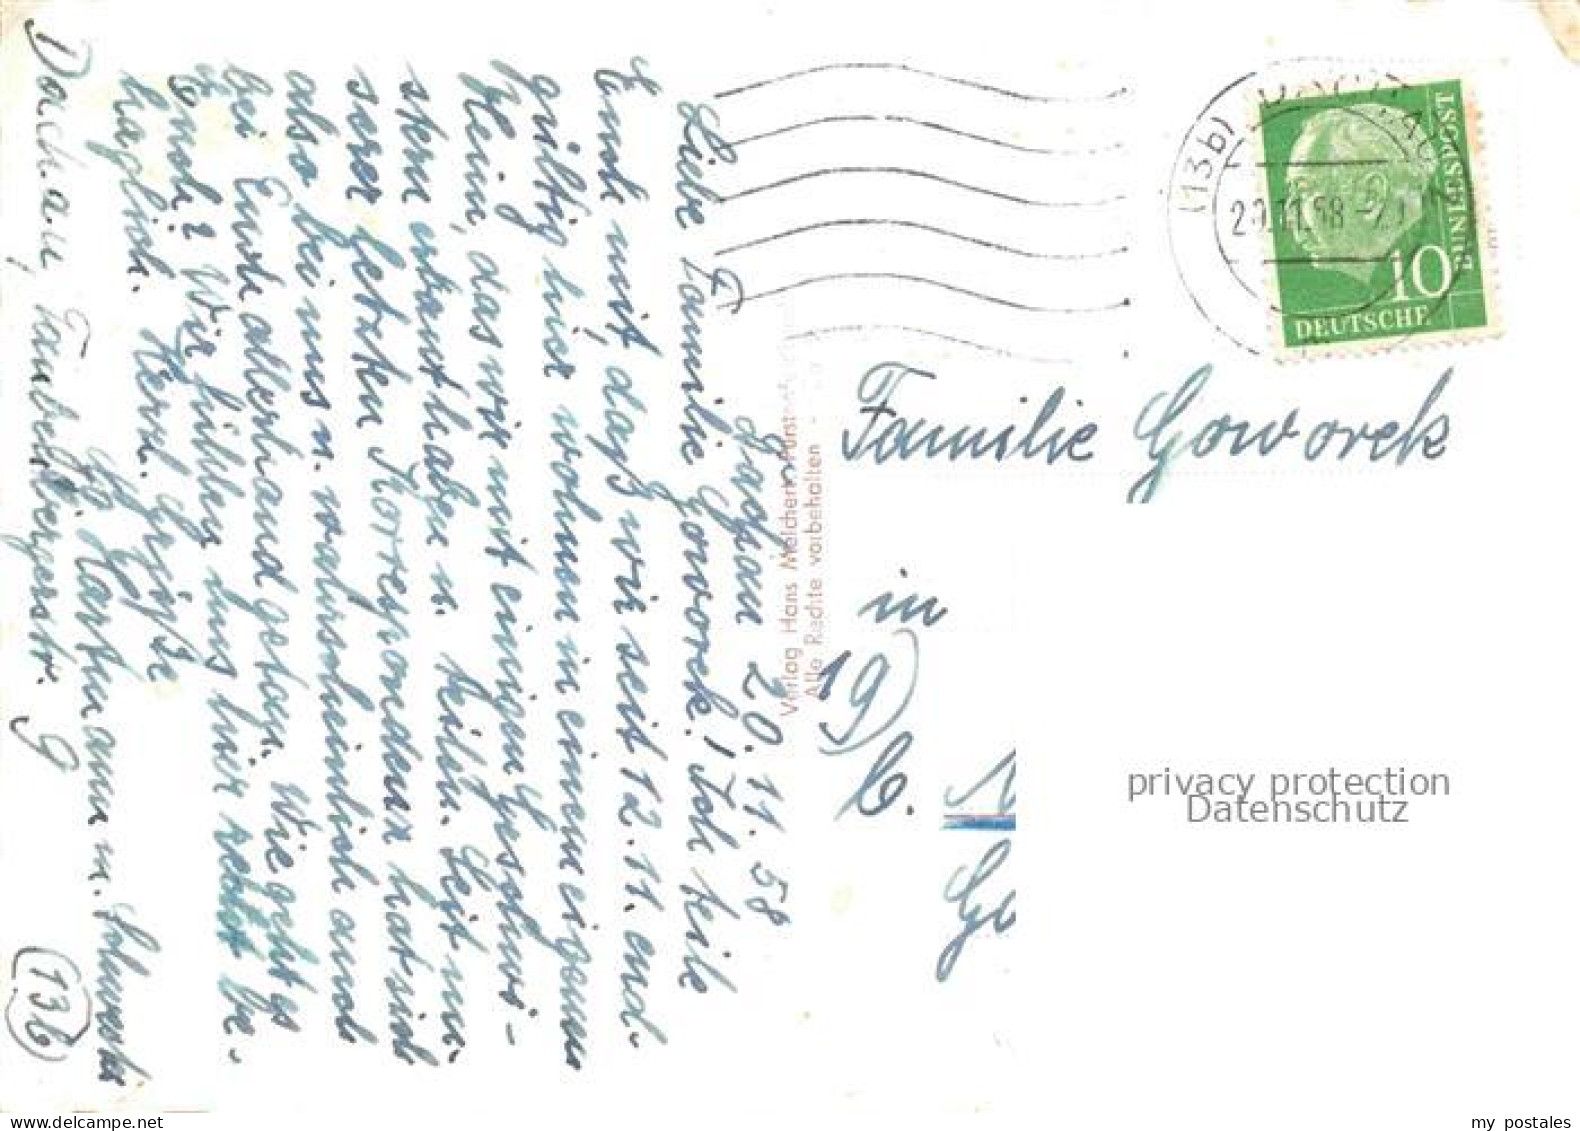 Dachau 20.11.58
Liebe Familie Goworek! Ich teile
Euch mit, daß wir seit 12.11. end-
gültig hier wohnen in einem eigenen
Heim, das wir mit einigen Geschwi-
stern erbaut haben u. teilen. Seit un-
serer letzten Korrespondenz hat sich
also bei uns u. wahrscheinlich auch
bei Euch allerhand getan. Wie geht es
Euch? Wir fühlen uns hier recht be-
haglich. Herzl. Grüße
Hartmann m. Schwester
Dachau, Taubenbergerstr. 9
(13b)
Verlag Hans Melchert
Alle Rechte vorbehalten
(13b)
20.11.58
DEUTSCHE
BUNDESPOST
10
Familie Goworek
in
19)
b.
privacy protection
Datenschutz
my postales